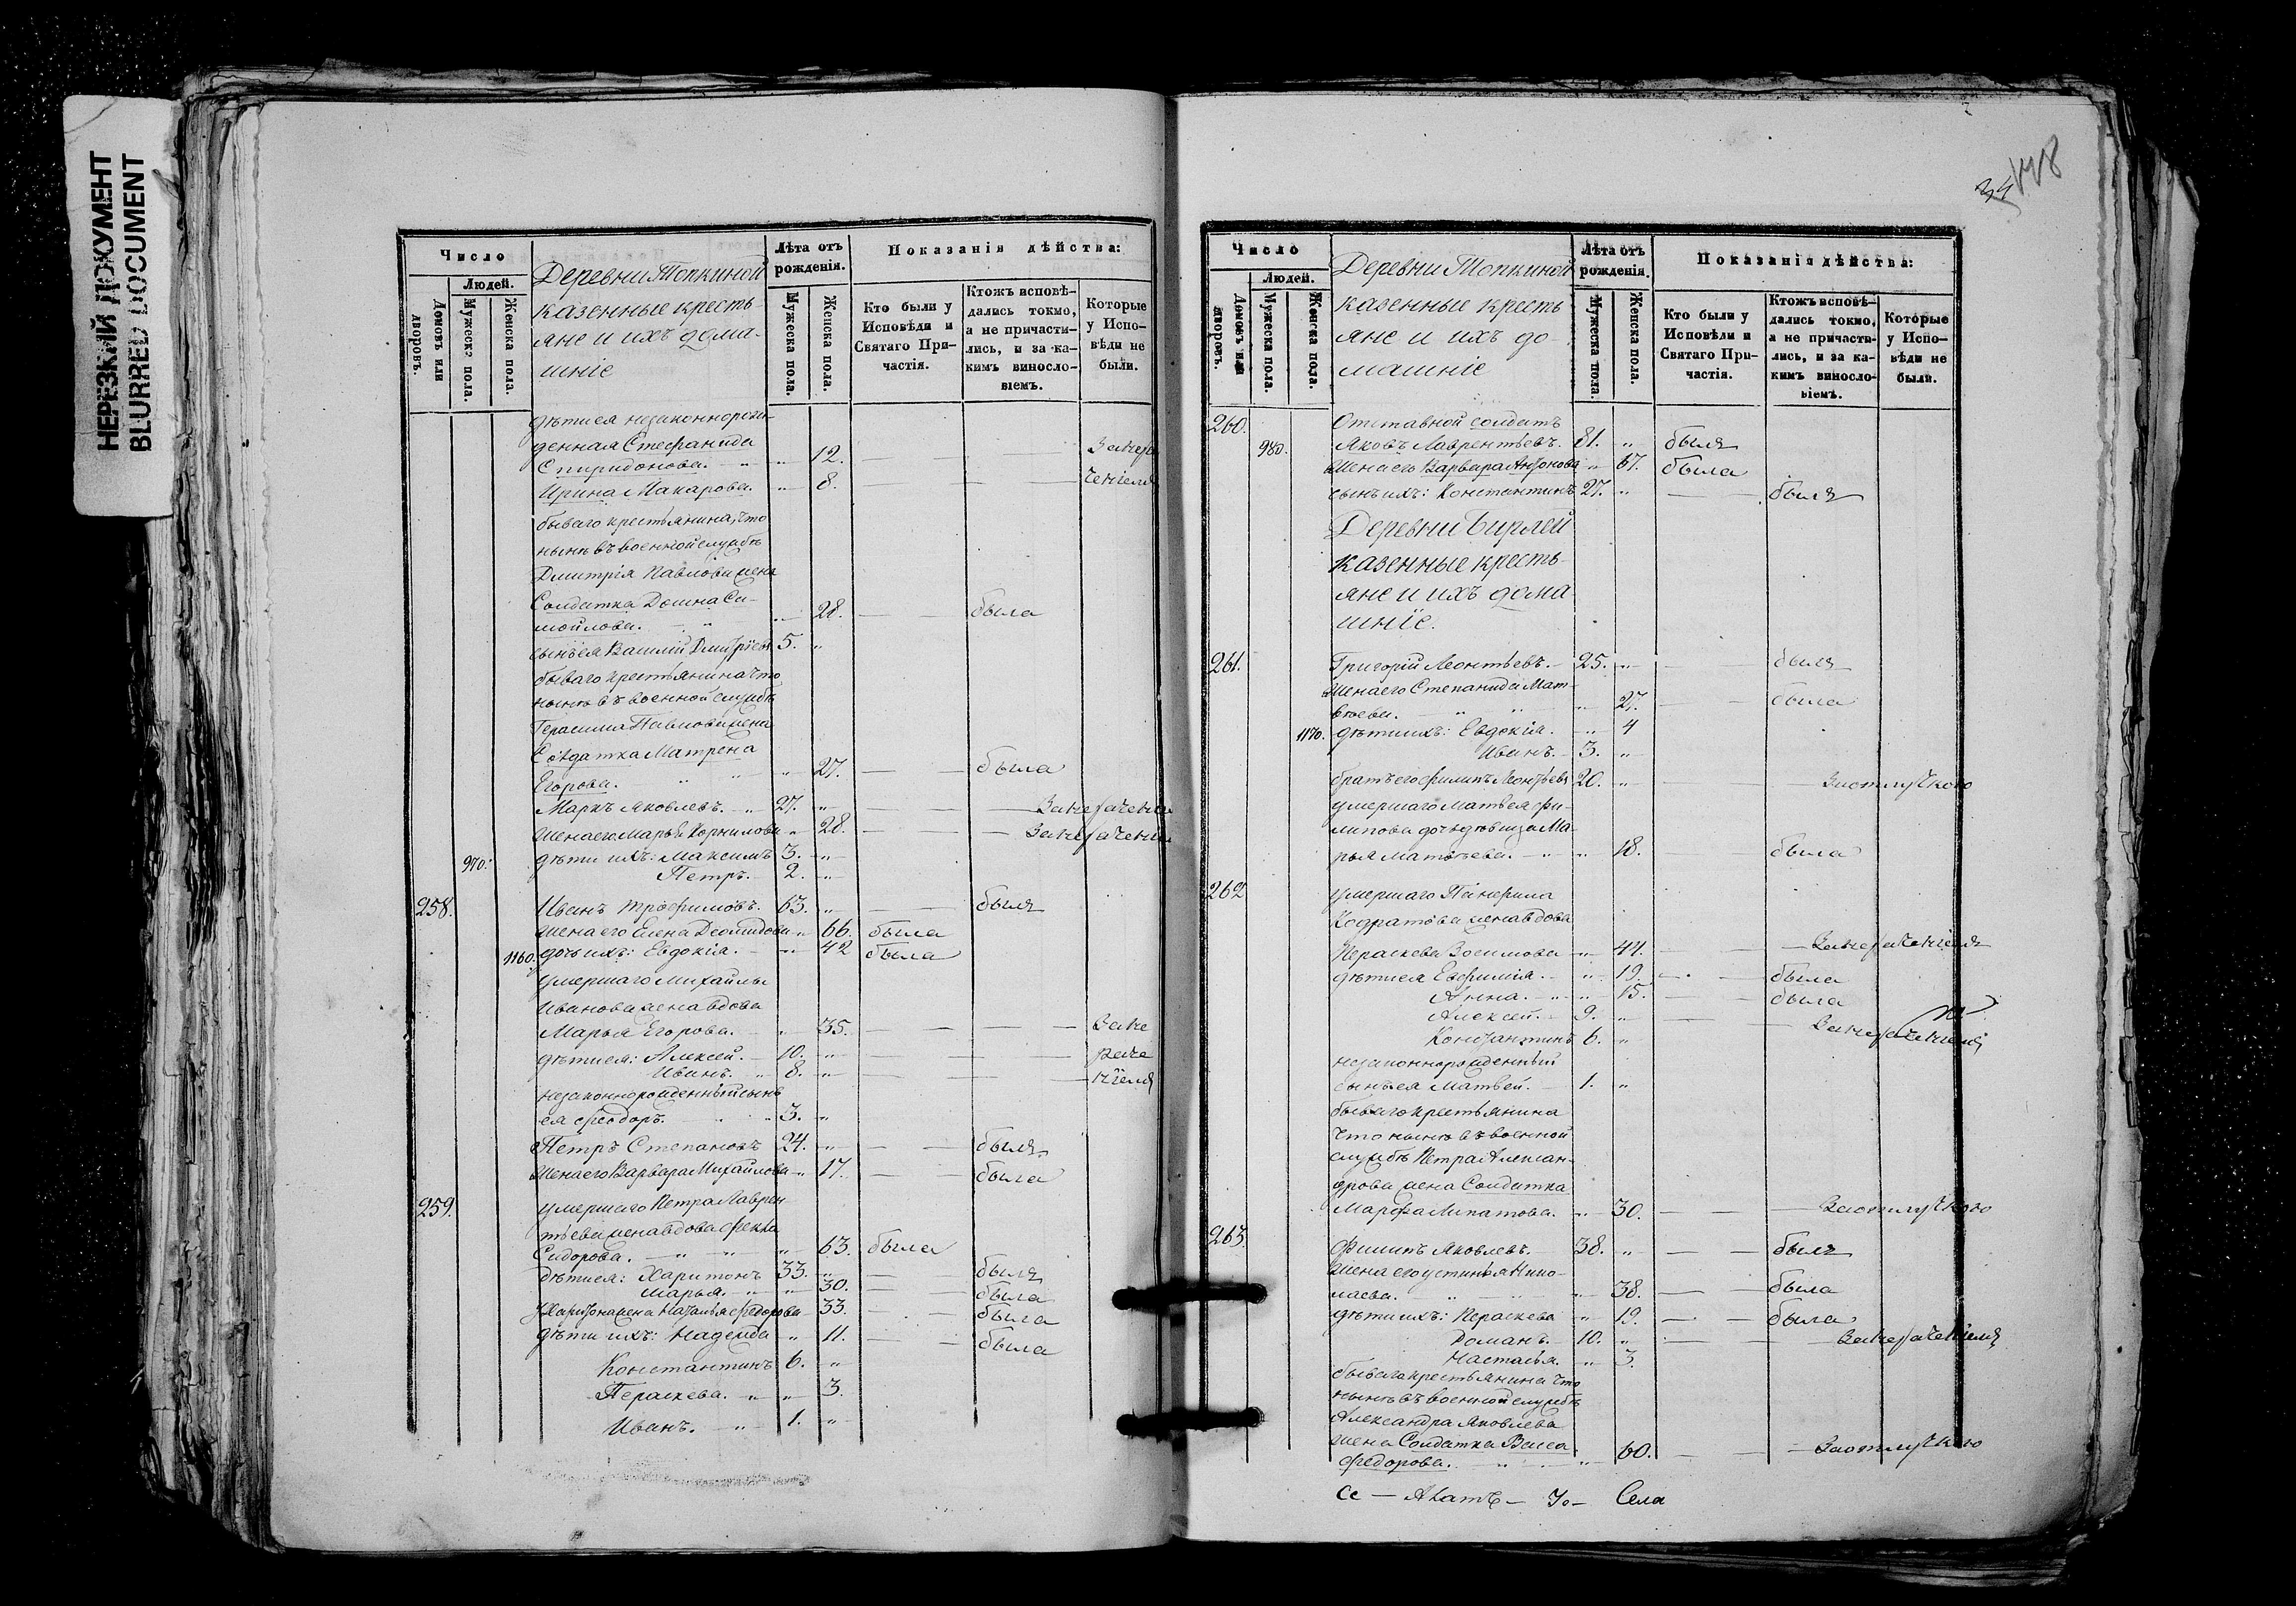 НЕРЕЗКИЙ ДОКУМЕНТ
BLURRED DOCUMENT
Число
Людей.
Домовъ или дворовъ.
Мужеска пола.
Женска пола.
Деревни Топкиной
казенные кресть-
яне и ихъ дома-
шніе
Лѣта отъ рожденія.
Мужеска пола.
Женска пола.
Показанія дѣйства:
Кто были у Исповѣди и Святаго Причастія.
Ктожъ исповѣ-
дались токмо,
а не причасти-
лись, и за ка-
кимъ винослo-
віемъ.
Которые у Испо-
вѣди не были.
дѣти ея незаконнорож-
денная Стефанида
Спиридонова. 12.
Ирина Макарова. 8.
бываго крестьянина, что
нынѣ въ военной службѣ
Дмитрія Павлова жена
Солдатка Домна Са-
мойлова. 28. была
сынъ ея Василій Дмитріевъ 5.
бываго крестьянина что
нынѣ въ военной службѣ
Герасима Павлова жена
Солдатка Матрена
Егорова. 27. была
Маркъ Яковлевъ. 27.
жена его Марья Корнилова 28.
970. дѣти ихъ: Максимъ 3.
Петръ. 2.
258. Иванъ Трофимовъ. 63. былъ
жена его Елена Деомидова 66. была
1160. дочь ихъ: Евдокія. 42 была
умершаго Михайлы
Иванова жена вдова
Марья Егорова. 35.
дѣти ея: Алексей. 10.
Иванъ. 8.
незаконнорожденный сынъ
ея Феодоръ. 3.
Петръ Степановъ 24. былъ
жена его Варвара Михайлова 17. была
259. умершаго Петра Лаврен-
тьева жена вдова Фекла
Сидорова. 63. была
дѣти ея: Харитонъ 33. былъ
Марья. 30. была
Харитона жена Наталья Федорова 33. была
дѣти ихъ: Надежда 11. была
Константинъ 6.
Параскева. 3.
Иванъ. 1.
Число
Людей.
Домовъ или дворовъ.
Мужеска пола.
Женска пола.
Деревни Топкиной
казенные кресть
яне и ихъ до-
машніе
Лѣта отъ рожденія.
Мужеска пола.
Женска пола.
Показанія дѣйства:
Кто были у Исповѣди и Святаго Причастія.
Ктожъ исповѣ-
дались токмо,
а не причасти-
лись, и за ка-
кимъ винослo-
віемъ.
Которые у Испо-
вѣди не были.
260. Отставной солдатъ
980. Яковъ Лаврентьевъ. 81. былъ
жена его Варвара Антонова 67. была
сынъ ихъ: Константинъ 27. былъ
Деревни Бирлей
казенные кресть-
яне и ихъ дома
шніе.
261. Григорій Леонтьевъ. 25. былъ
жена его Степанида Мат-
вѣева. 27. была
1170. дѣти ихъ: Евдокія. 4
Иванъ. 3.
братъ его Филипъ Леонтьевъ 20. За отлучкою
умершаго Матвея Фи-
липова дочь дѣвица Ма-
рья Матвѣева. 18. была
262 умершаго Панфила
Кодратова жена вдова
Параскева Зосимова 44.
дѣти ея Евфимія. 19. была
Анна. 15. была
Алексей. 9.
Константинъ 6.
незаконнорожденный
сынъ ея Матвей. 1.
бываго крестьянина
что нынѣ въ военной
службѣ Петра Алексан-
дрова жена Солдатка
Марфа Липатова. 30. За отлучкою
263. Филипъ Яковлевъ. 38. былъ
жена его Устинья Нико-
лаева. 38. была
дѣти ихъ: Параскева 19. была
Романъ 10. За нераченіемъ
Настасья. 3.
бываго крестьянина что
нынѣ въ военной службѣ
Александра Яковлева
жена Солдатка Васса
Федорова. 60. За отлучкою
Села